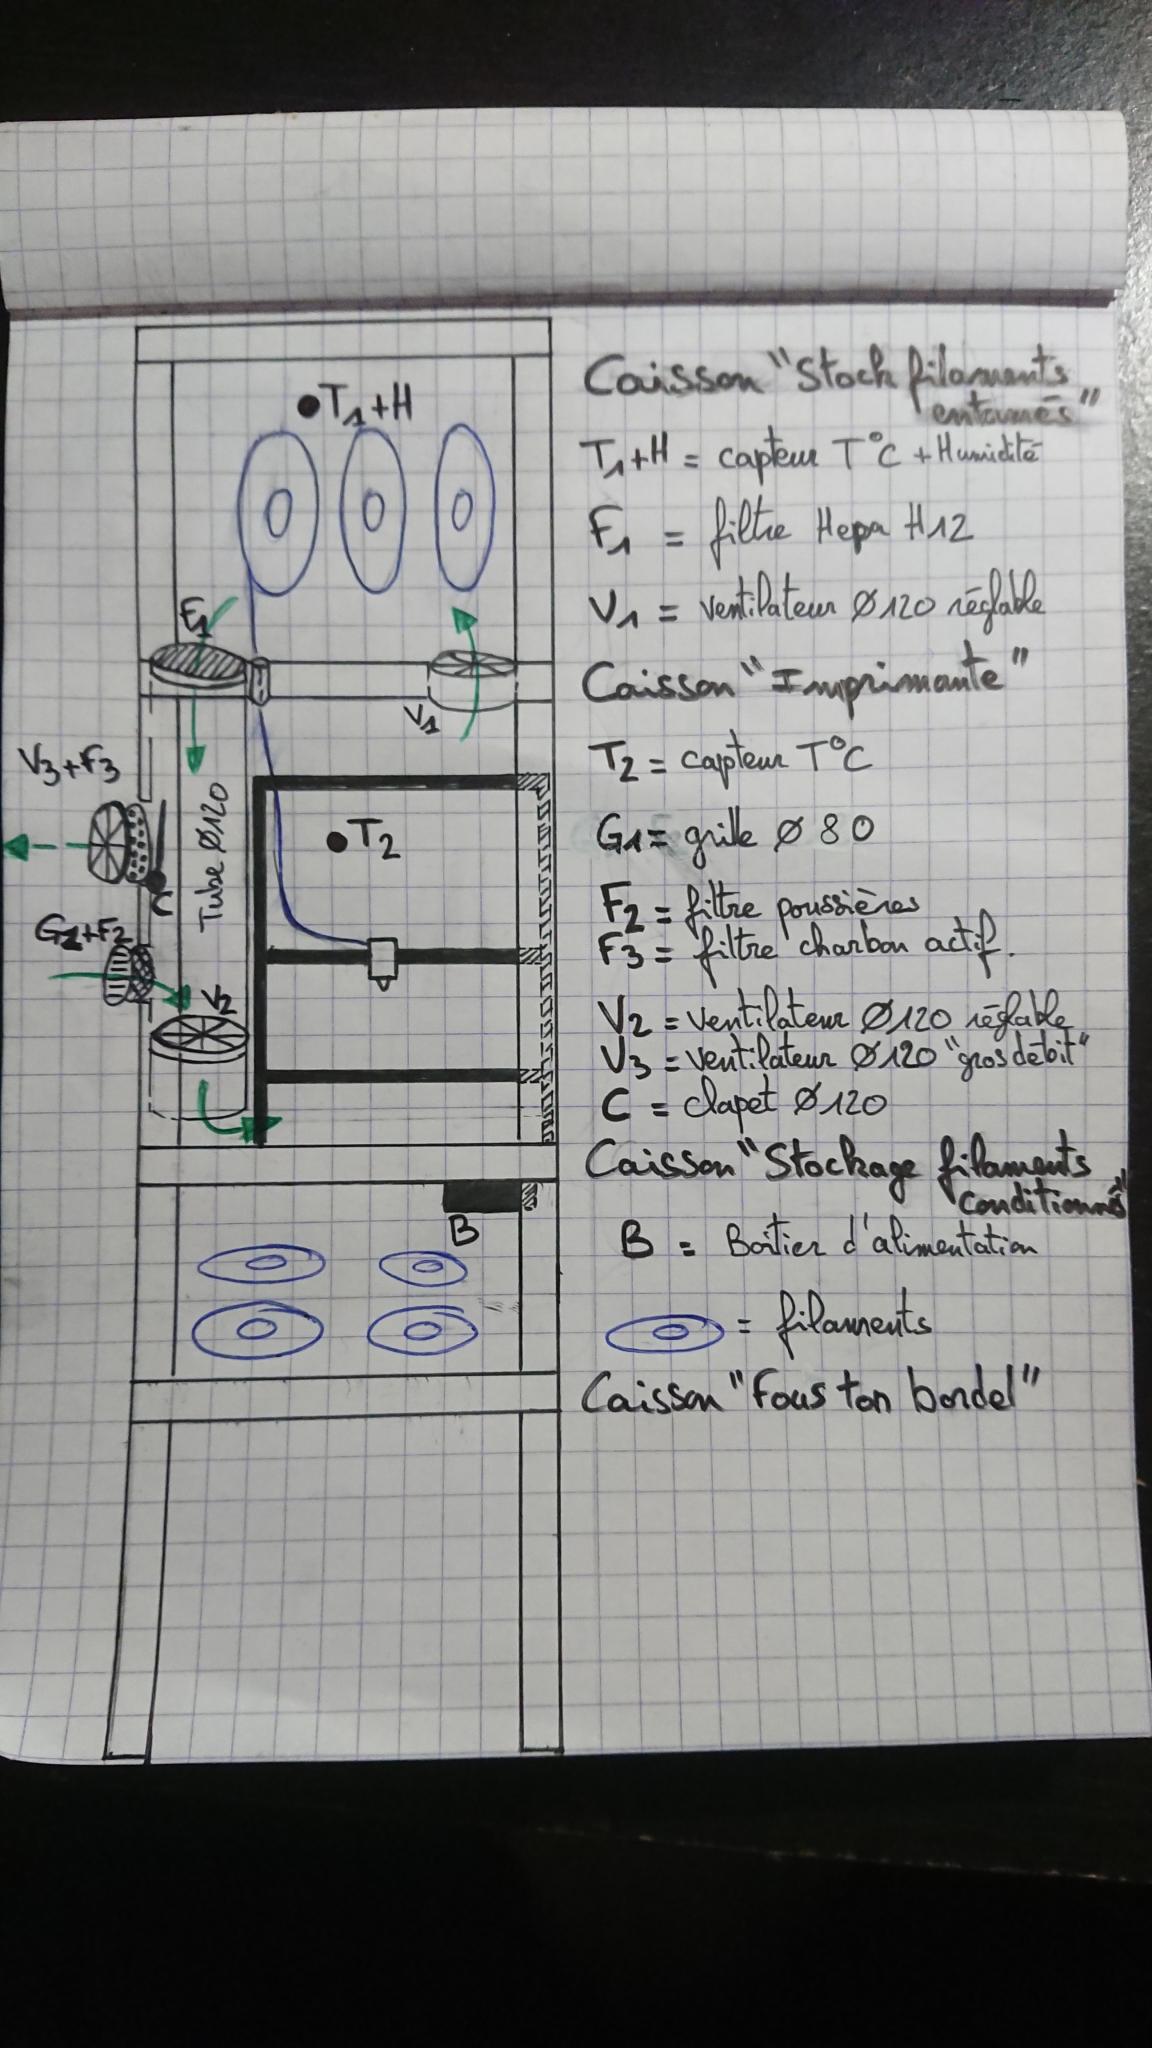 T1+H
F1
V1
V3+F3
Tube Ø120
T2
C
G1+F2
V2
B
Caisson "Stock filaments
entamés"
T1+H = capteur T°C + Humidité
F1 = filtre Hepa H12
V1 = ventilateur Ø120 réglable
Caisson "Imprimante"
T2 = capteur T°C
G1 = grille Ø 80
F2 = filtre poussières
F3 = filtre charbon actif.
V2 = ventilateur Ø120 réglable
V3 = ventilateur Ø120 "gros débit"
C = clapet Ø120
Caisson "Stockage filaments
conditionnés"
B = Boîtier d'alimentation
= filaments
Caisson "Fous ton bordel"